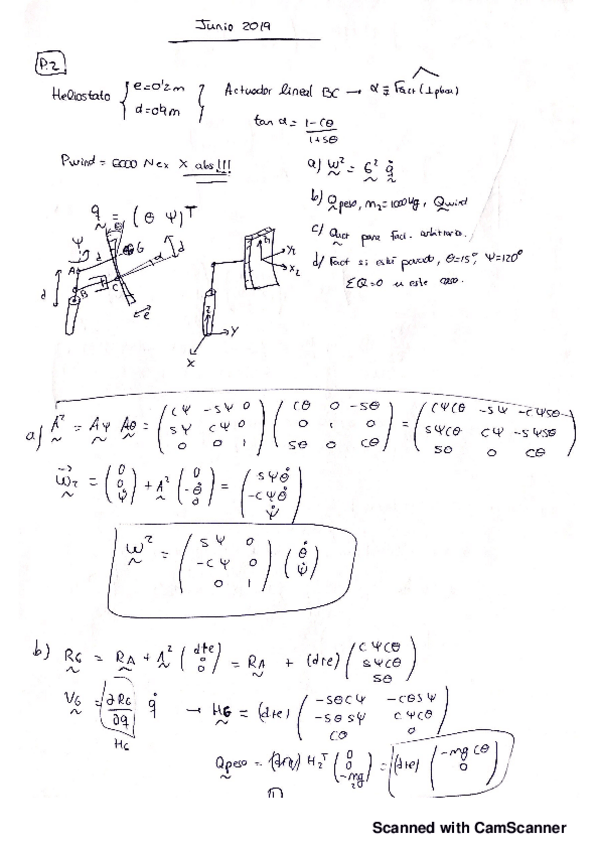 Junio 2019
P.2
Heliostato { e=0'2m
d=0'4m }
Actuador lineal BC → α ≡ Fact (⊥placa)
tan α = (1-Cθ)/(1+Sθ)
Pwind = 6000 N ex X abs!!!
a) ω² = G² q̇
b) Qpeso, m₂=1000kg, Qwind
c) Qact para Fact. arbitraria.
d) Fact si está parado, θ=15°, Ψ=120°
ΣQ=0 en este caso.
q = (θ Ψ)ᵀ
Ψ A d B C G θ α d e
h Y₂ X₂ Z Y X
a) A² = AΨ Aθ = (CΨ -SΨ 0; SΨ CΨ 0; 0 0 1) (Cθ 0 -Sθ; 0 1 0; Sθ 0 Cθ) = (CΨCθ -SΨ -CΨSθ; SΨCθ CΨ -SΨSθ; Sθ 0 Cθ)
ω₂ = (0; 0; Ψ̇) + A² (0; -θ̇; 0) = (SΨθ̇; -CΨθ̇; Ψ̇)
ω² = (SΨ 0; -CΨ 0; 0 1) (θ̇; Ψ̇)
b) RG = RA + A² (d+e; 0; 0) = RA + (d+e) (CΨCθ; SΨCθ; Sθ)
VG = ∂RG/∂q q̇ → HG = (d+e) (-SθCΨ -CθSΨ; -SθSΨ CΨCθ; Cθ 0)
HG
Qpeso = (d+e) H₂ᵀ (0; 0; -m₂g) = (d+e) (-mg Cθ; 0)
Scanned with CamScanner